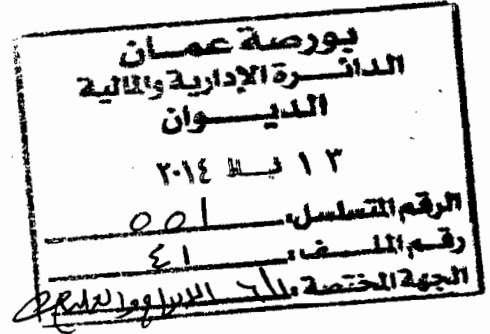 بورصة عمـان
الدائـرة الإدارية والمالية
الديـوان
١٣ شباط ٢٠١٤
الرقم المتسلسل: ٥٥١
رقم الملف: ٤١
الجهة المختصة: